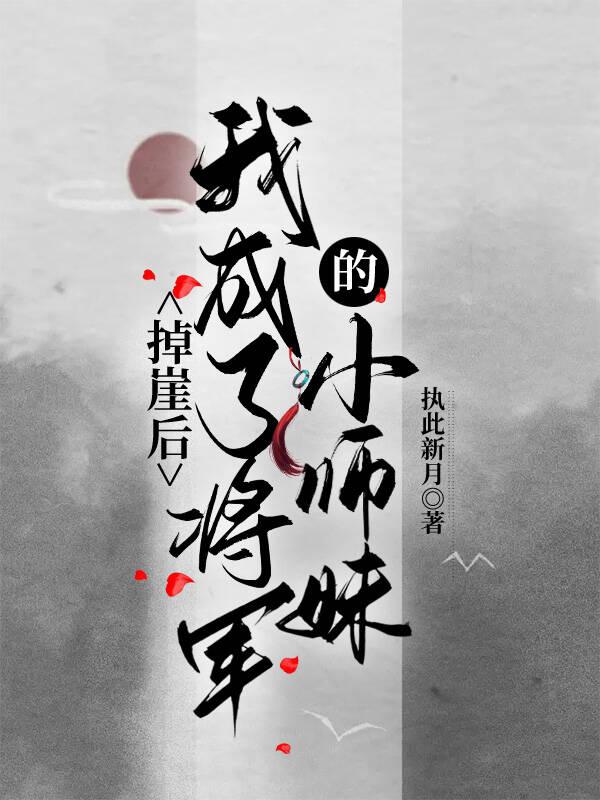 <掉崖后>
我成了将军
的小师妹
执此新月◎著